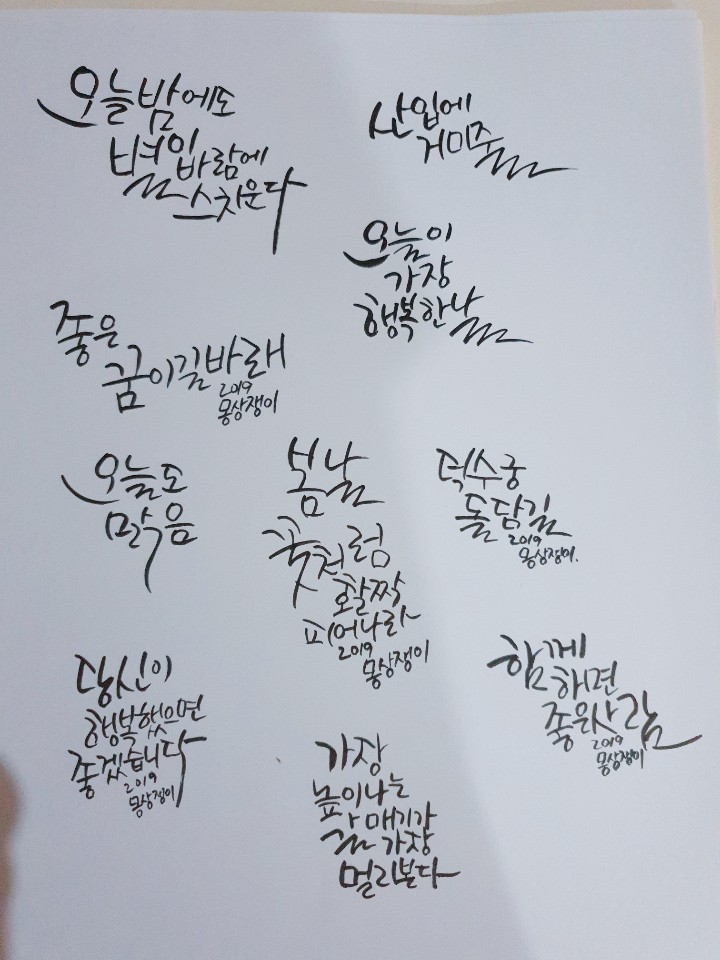 오늘밤에도
별이바람에
스치운다
산입에
거미줄
오늘이
가장
행복한날
좋은
꿈이길바래
2019
몽상쟁이
오늘도
맑음
봄날
꽃처럼
활짝
피어나라
2019
몽상쟁이
덕수궁
돌담길
2019
몽상쟁이.
당신이
행복했으면
좋겠습니다
2019
몽상쟁이
함께
하면
좋은사람
2019
몽상쟁이
가장
높이나는
갈매기가
가장
멀리본다